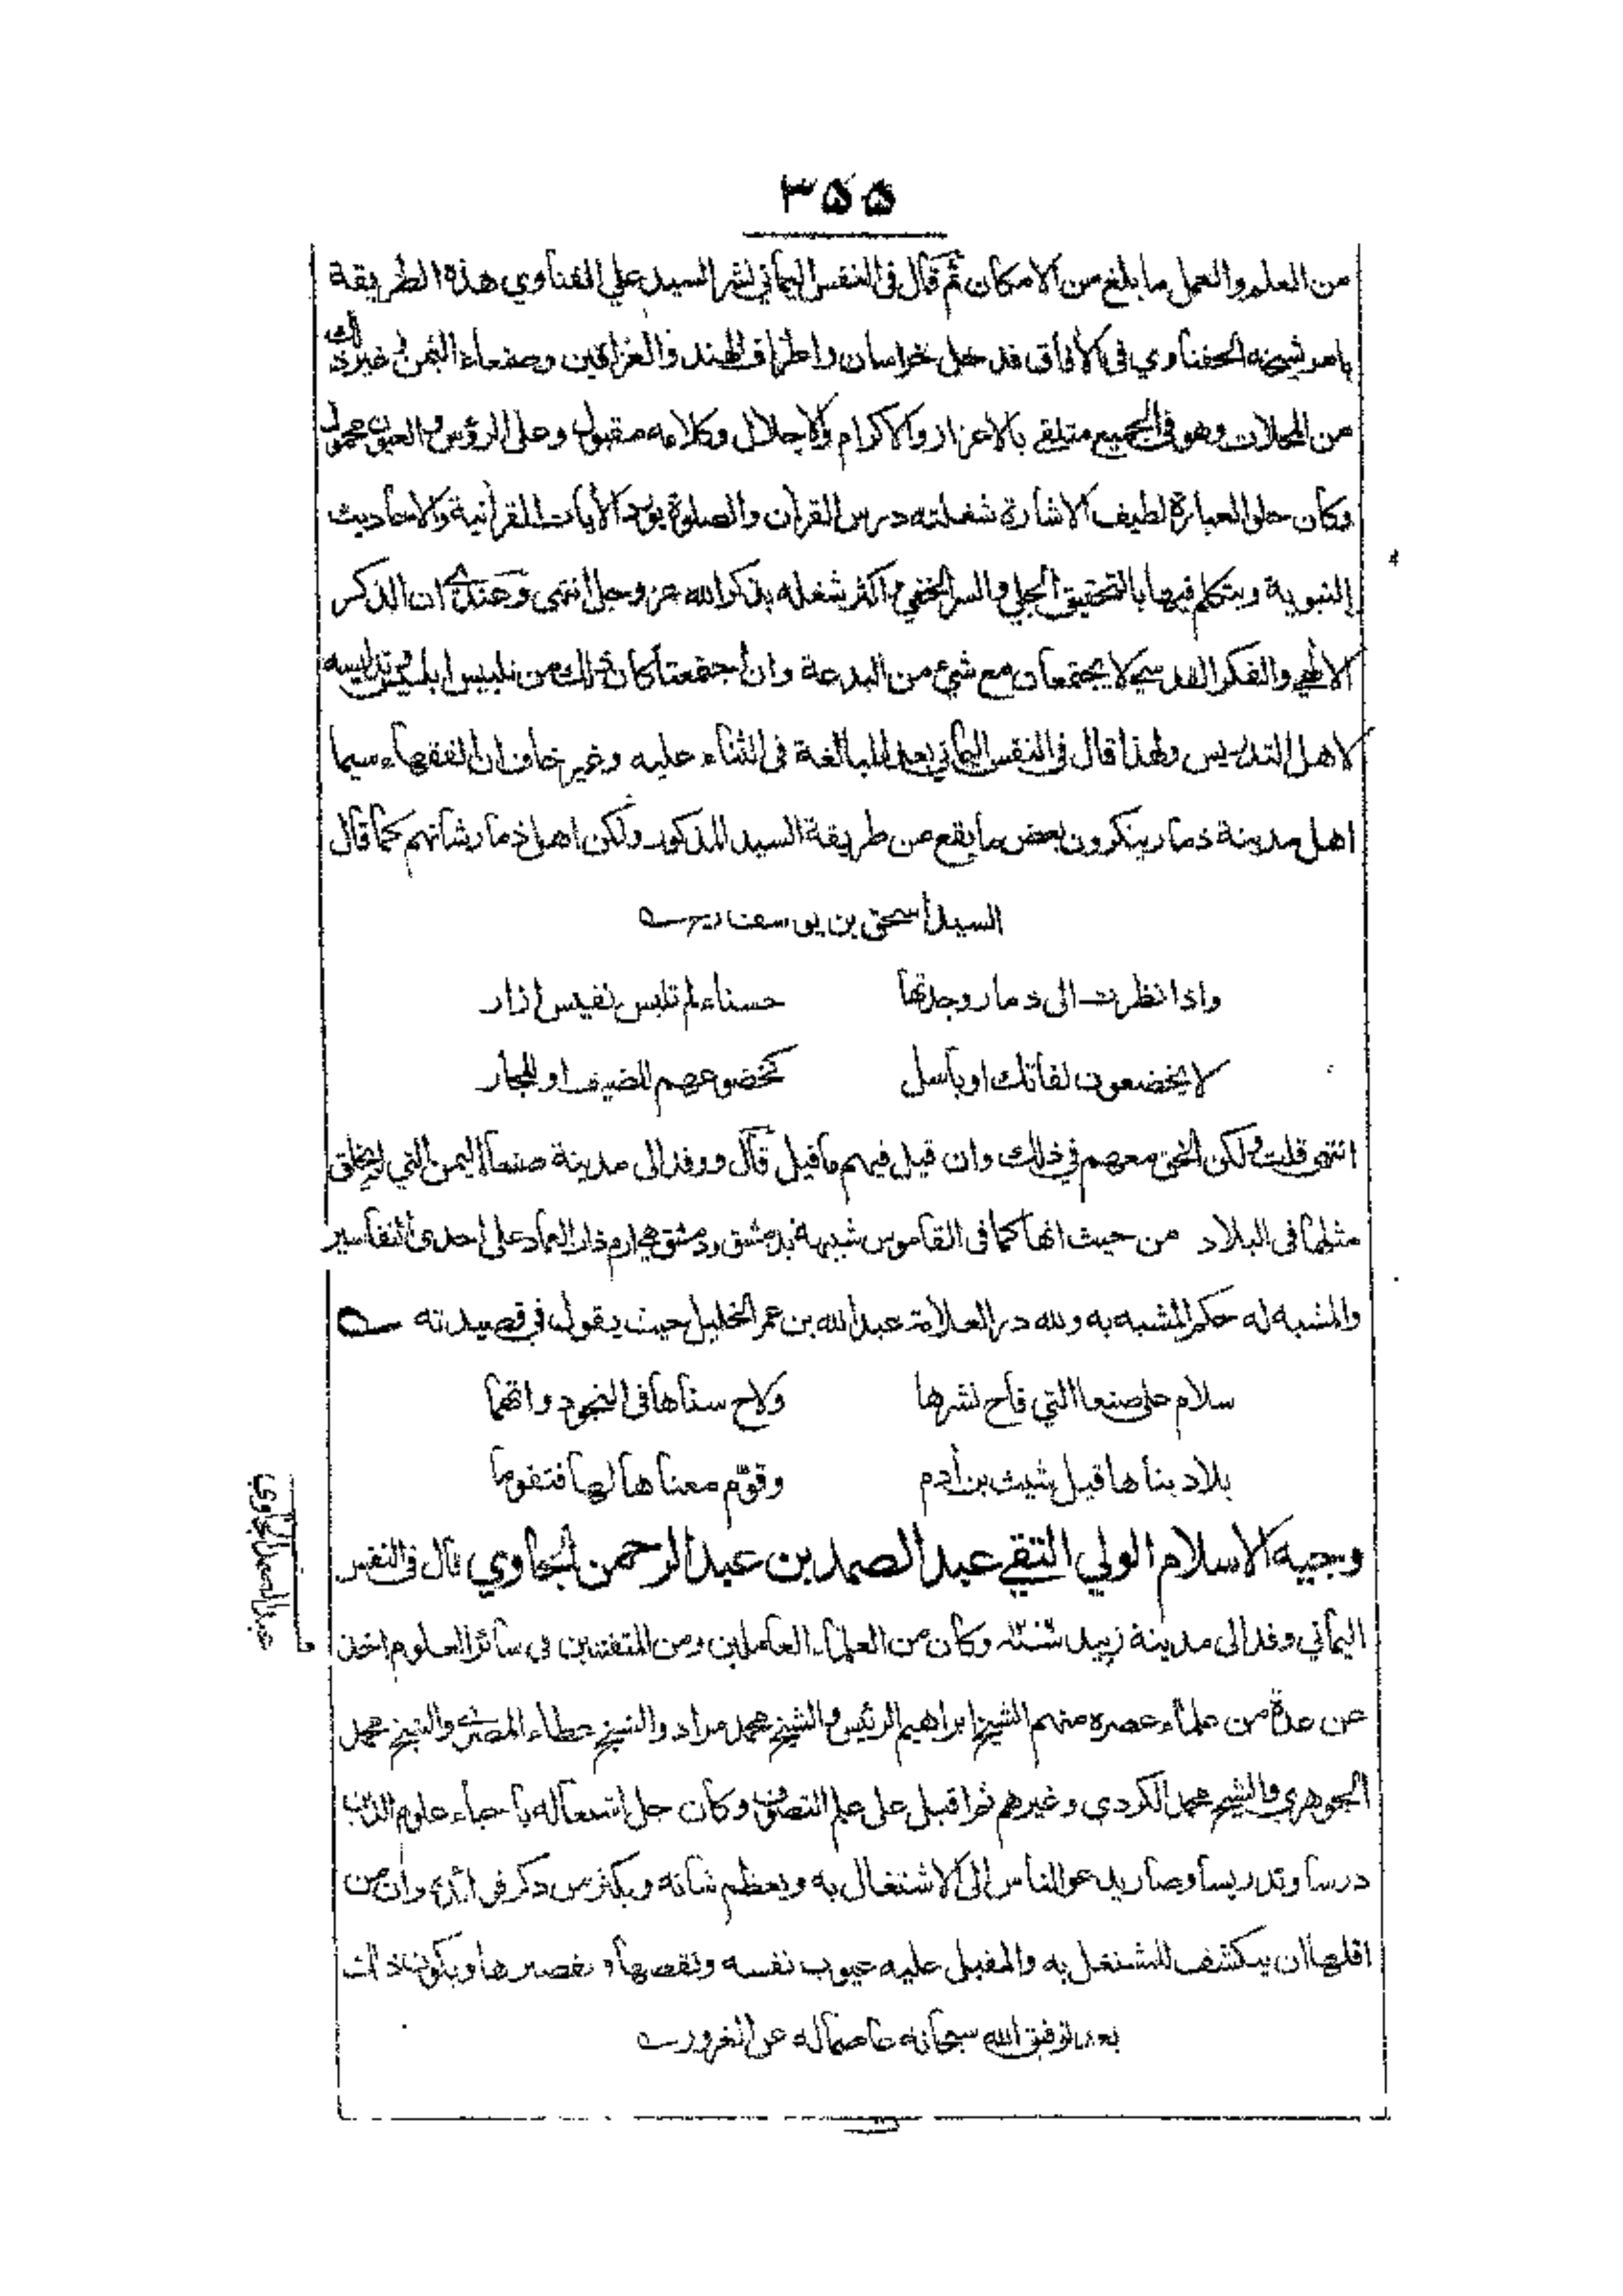 ٣٥٥
من العلم والعمل ما بلغ من الامكان ثم قال فى النفس اليماني نشر السيد علي القناوي هذه الطريقة
بامر شيخه الحفناوي فى الأفاق فدخل خراسان واطراف الهند والعراقين وصنعاء اليمن وغير ذلك
من المحلات وهو فى الجميع متلقى بالاعزاز والاكرام والاجلال وكلامه مقبول وعلى الرؤس والعيون محمول
وكان حلو العبارة لطيف الاشارة شغلته درس القرأن والصلوة يورد الأيات القرأنية والاحاديث
النبوية ويتكلم فيها بالتحقيق الجلي والسر الخفي واكثر شغله بذكر الله عز وجل انتهى وعندي ان الذكر
الالهي والفكر القدسي لا يجتمعان مع شيء من البدعة وان اجتمعتا كان ذلك من تلبيس ابليس وتدليسه
لاهل التدريس ولهذا قال فى النفس اليماني بعد المبالغة فى الثناء عليه وغير خاف ان الفقهاء سيما
اهل مدينة ذمار ينكرون بعض ما يقع من طريقة السيد المذكور ولكن اهل ذمار شانهم كما قال
السيد اسحق بن يوسف
واذا نظرت الى ذمار وجدتها حسناء لم تلبس نفيس ازار
لا يخضعون لفاتك او باسل كخضوعهم للضيف او للجار
انتهى قلت ولكن الحق معهم في ذلك وان قيل فيهم ما قيل قال ووفد الى مدينة صنعاء اليمن التي لم يخلق
مثلها فى البلاد من حيث انها كما فى القاموس شبيهة بدمشق ودمشق هي ارم ذات العماد على احدى التفاسير
والمشبه له حكم المشبه به ولله در العلامة عبد الله بن عمر الخليل حيث يقول في قصيدته
سلام على صنعا التي فاح نشرها ولاح سناها فى النجود واتهما
بلاد بناها قبل شيث بن أدم وقوّم معناها لها فتقوما
وجيه الاسلام الولي التقي عبد الصمد بن عبد الرحمن الجاوي قال فى النفس
عبد الصمد الجاوي
اليماني وفد الى مدينة زبيد سنة وكان من العلماء العاملين ومن المتفننين فى سائر العلوم اخذ
عن عدة من علماء عصره منهم الشيخ ابراهيم الرئيس والشيخ محمد مراد والشيخ عطاء المصري والشيخ محمد
الجوهري والشيخ محمد الكردي وغيرهم ثم اقبل على علم التصوف وكان جل اشتغاله باحياء علوم الدين
درسا وتدريسا وصار يدعو الناس الى الاشتغال به ويعظم شانه ويكثر من ذكر فوائده وان من
اقلها ان يكشف للمشتغل به والمقبل عليه عيوب نفسه ونقصها وتقصيرها ويكون ذلك
بعد توفيق الله سبحانه عاصما له عن الغرور